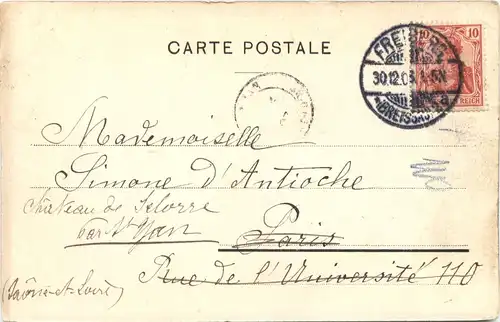 CARTE POSTALE
10 10
REICH
FREIBURG
30.12.03. 4-5N
(BREISGAU)
Mademoiselle
Simone d'Antioche
Château de Selorre
par St Yan
Paris
Rue de l'Université 110
(Saône-et-Loire)